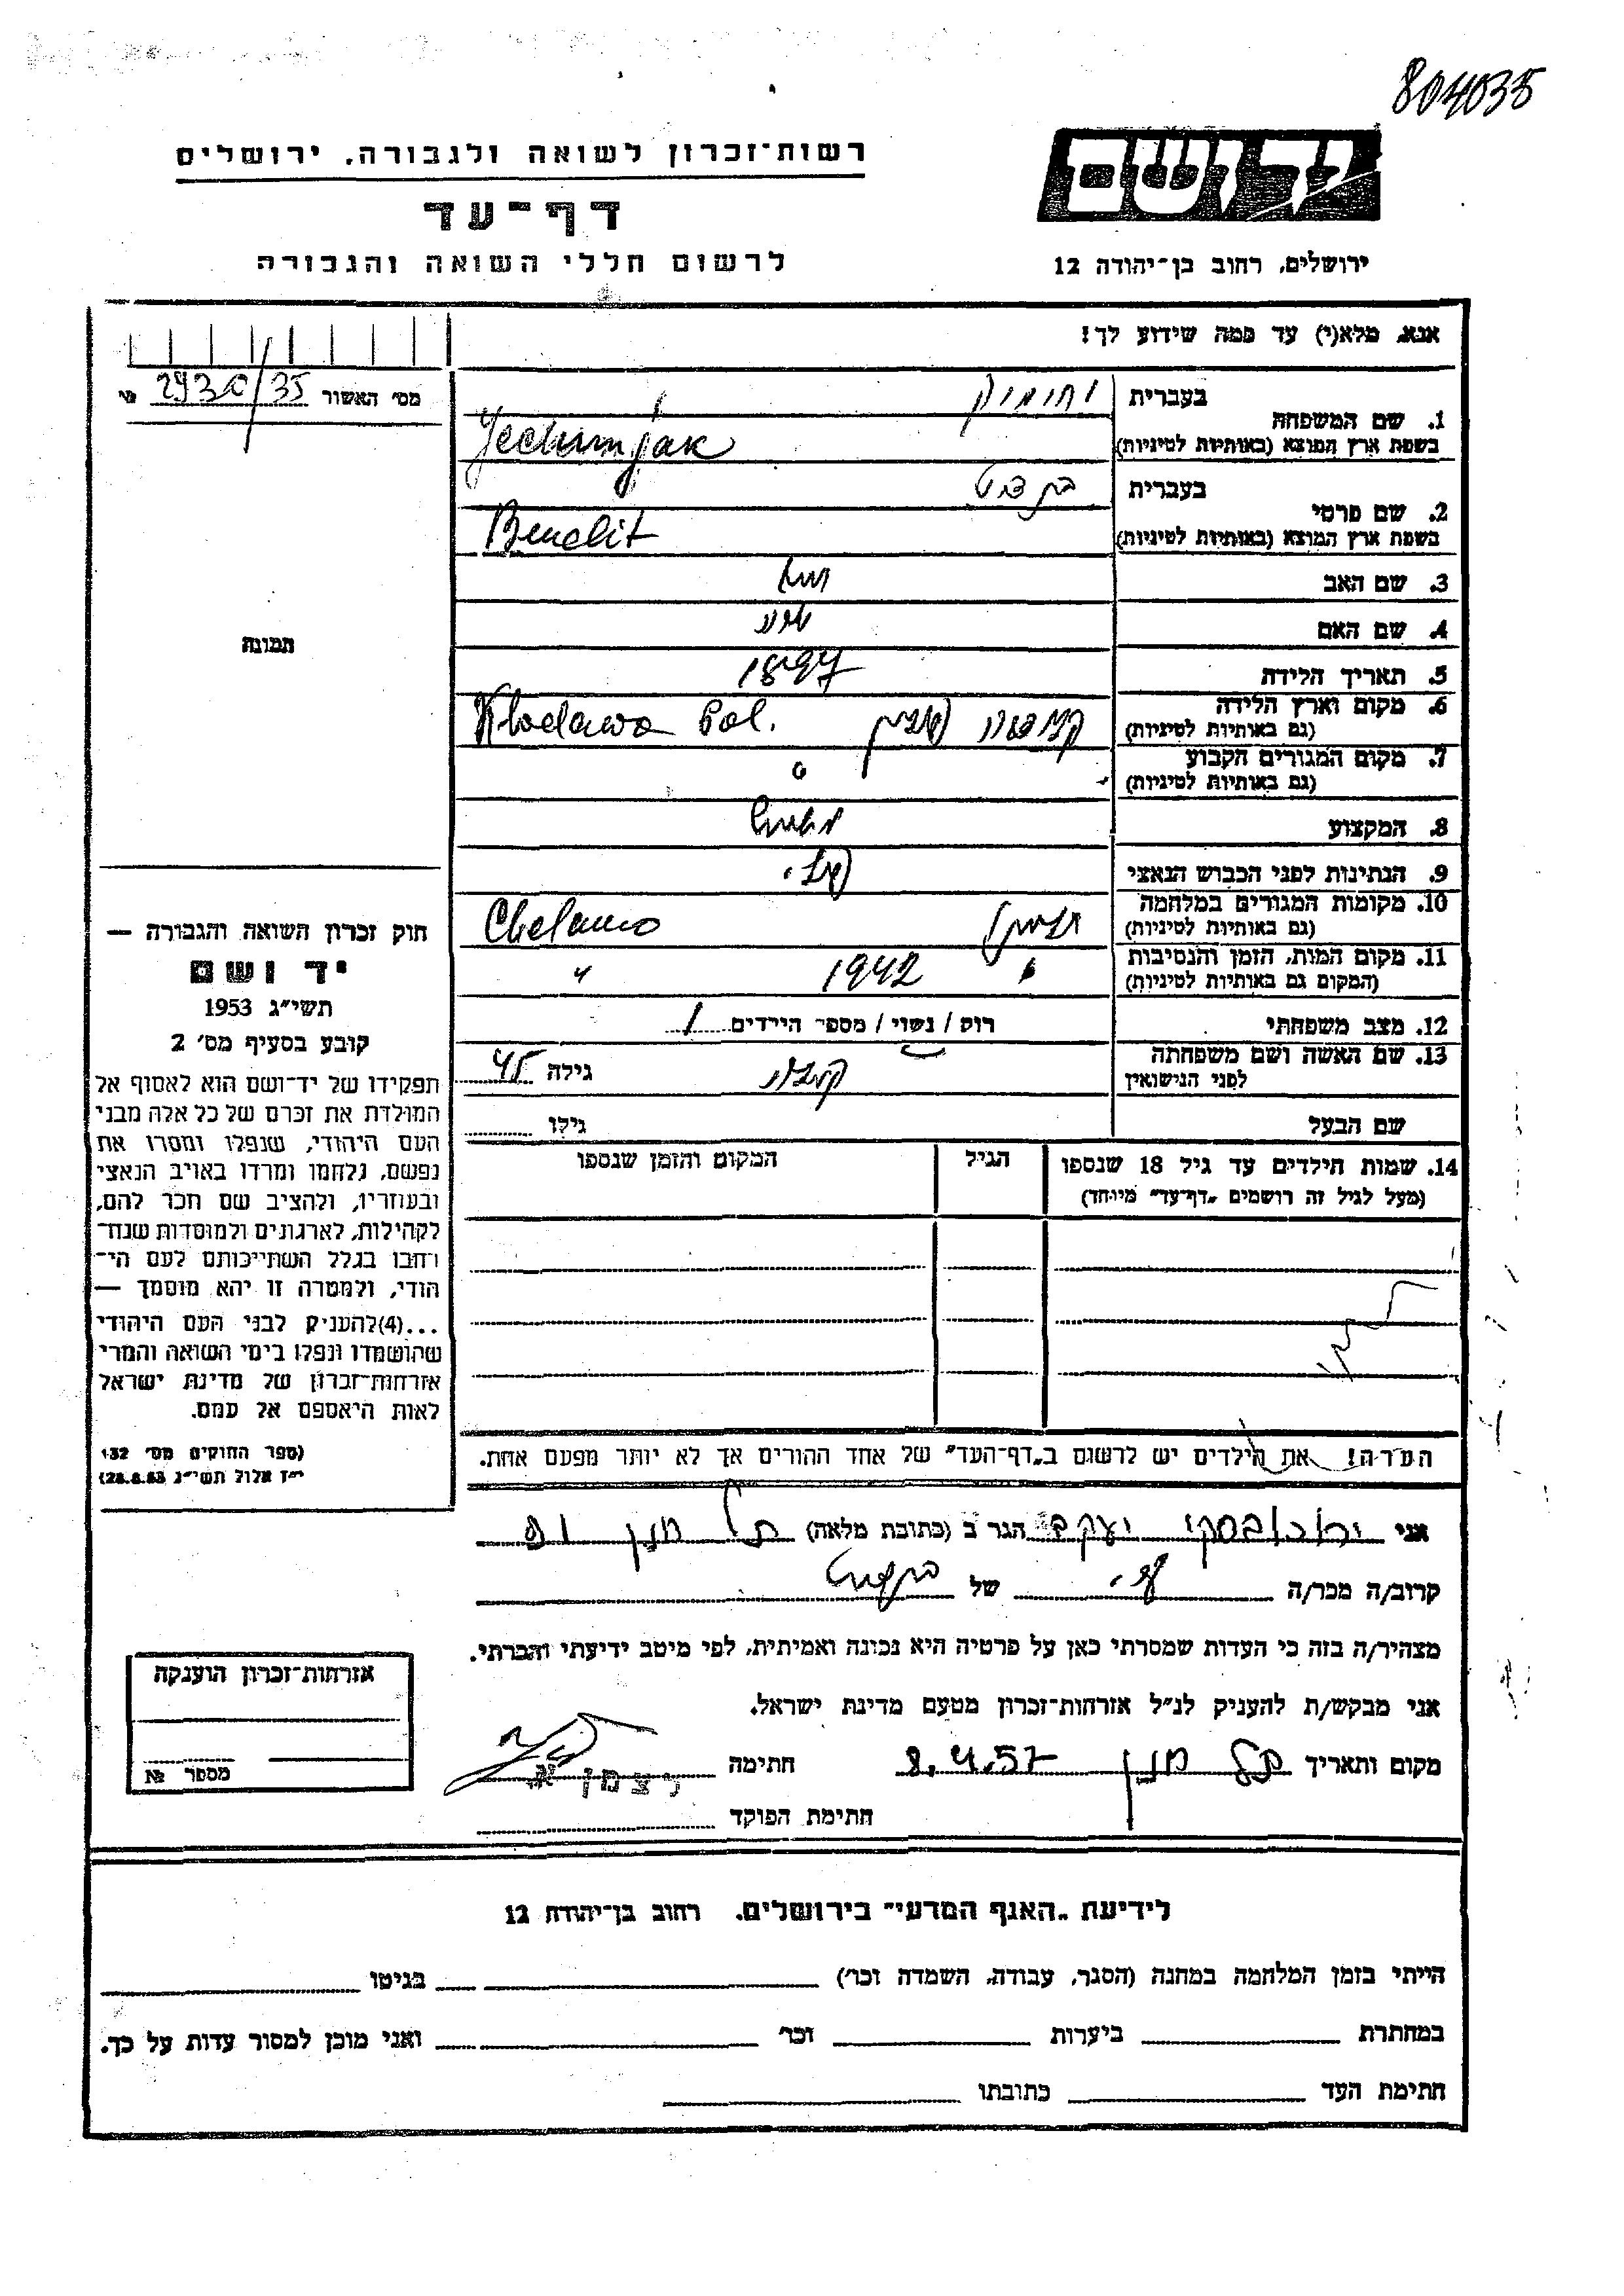 804035
רשות־זכרון לשואה ולגבורה, ירושלים
יד ושם
דף־עד
לרשום חללי השואה והגבורה
ירושלים, רחוב בן־יהודה 12
אנא, מלא(י) עד כמה שידוע לך!
מס׳ האשור 293c/35 №
1. שם המשפחה בעברית
בשפת ארץ המוצא (באותיות לטיניות) Jechimjak
2. שם פרטי בעברית
בשפת ארץ המוצא (באותיות לטיניות) Benedit
3. שם האב
4. שם האם
5. תאריך הלידה 1897
6. מקום וארץ הלידה
(גם באותיות לטיניות) Klodawa Pol.
7. מקום המגורים הקבוע
(גם באותיות לטיניות)
8. המקצוע
9. הנתינות לפני הכבוש הנאצי
10. מקומות המגורים במלחמה
(גם באותיות לטיניות) Chelmno
11. מקום המות, הזמן והנסיבות 1942 "
(המקום גם באותיות לטיניות)
12. מצב משפחתי רוק / נשוי / מספר הילדים 1
13. שם האשה ושם משפחתה
לפני הנישואין גילה 45
שם הבעל גילו
14. שמות הילדים עד גיל 18 שנספו הגיל המקום והזמן שנספו
(מעל לגיל זה רושמים „דף־עד” מיוחד)
הערה! את הילדים יש לרשום ב„דף־העד” של אחד ההורים אך לא יותר מפעם אחת.
תמונה
חוק זכרון השואה והגבורה —
יד ושם
תשי״ג 1953
קובע בסעיף מס׳ 2
תפקידו של יד־ושם הוא לאסוף אל
המולדת את זכרם של כל אלה מבני
העם היהודי, שנפלו ומסרו את
נפשם, נלחמו ומרדו באויב הנאצי
ובעוזריו, ולהציב שם וזכר להם,
לקהילות, לארגונים ולמוסדות שנח־
רבו בגלל השתייכותם לעם הי־
הודי, ולמטרה זו יהא מוסמך —
...(4) להעניק לבני העם היהודי
שהושמדו ונפלו בימי השואה והמרי
אזרחות־זכרון של מדינת ישראל
לאות היאספם אל עמם.
(ספר החוקים מס׳ 132
י״ז אלול תשי״ג 28.8.53)
אני יעקב הגר ב (כתובת מלאה) תל מונד
קרוב/ה מכר/ה של
מצהיר/ה בזה כי העדות שמסרתי כאן על פרטיה היא נכונה ואמיתית, לפי מיטב ידיעתי והכרתי.
אני מבקש/ת להעניק לנ״ל אזרחות־זכרון מטעם מדינת ישראל.
מקום ותאריך תל מונד 8.4.57 חתימה
חתימת הפוקד
אזרחות־זכרון הוענקה
מספר №
לידיעת „האגף המדעי” בירושלים, רחוב בן־יהודה 12
הייתי בזמן המלחמה במחנה (הסגר, עבודה, השמדה וכר׳) בגיטו
במחתרת ביערות וכר׳ ואני מוכן למסור עדות על כך.
חתימת העד כתובתו